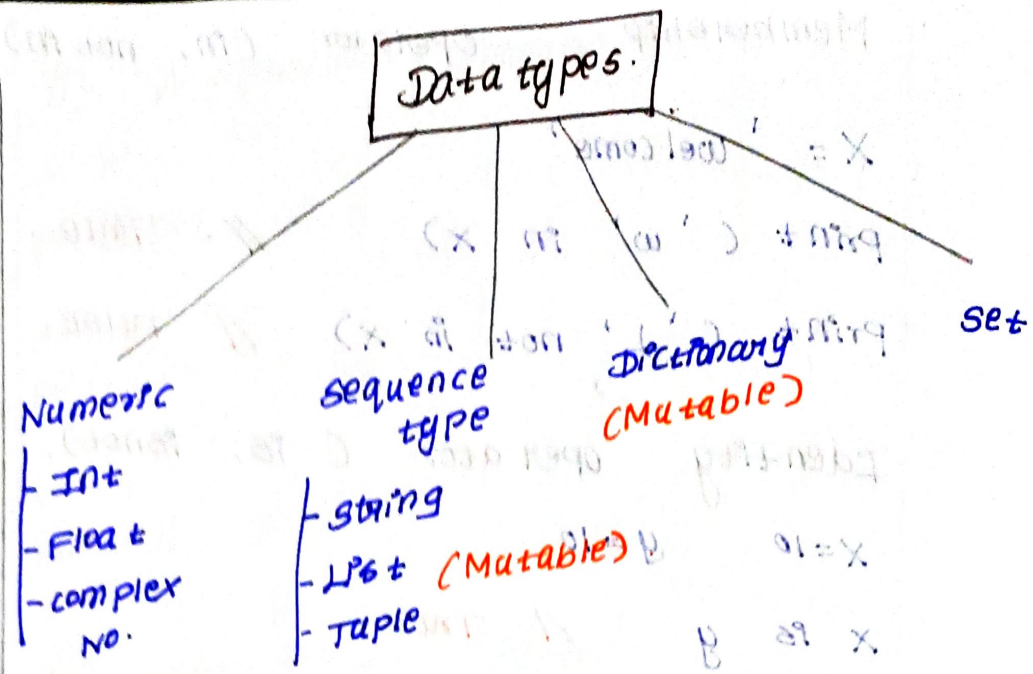 Data types.
Numeric
Int
Float
complex
No.
Sequence
type
String
List (Mutable)
Tuple
Dictionary
(Mutable)
Set